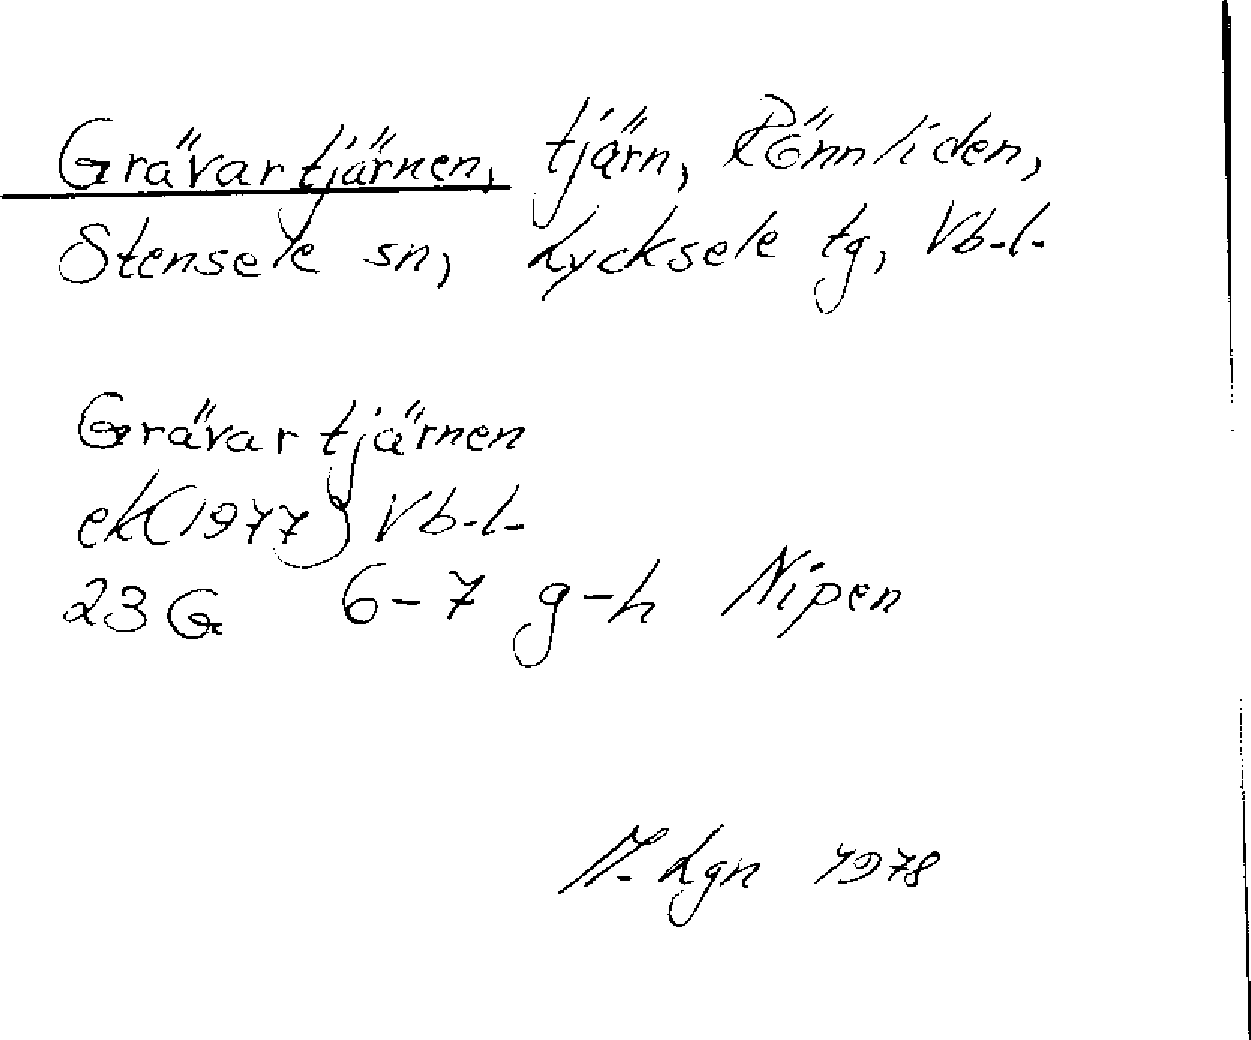 Grävartjärnen, tjärn, Rönnliden,
Stensele sn, Lycksele tg, Vb-l-
Grävartjärnen
ek(1977) Vb-l-
23G 6-7 g-h Nipen
Lgn 1978